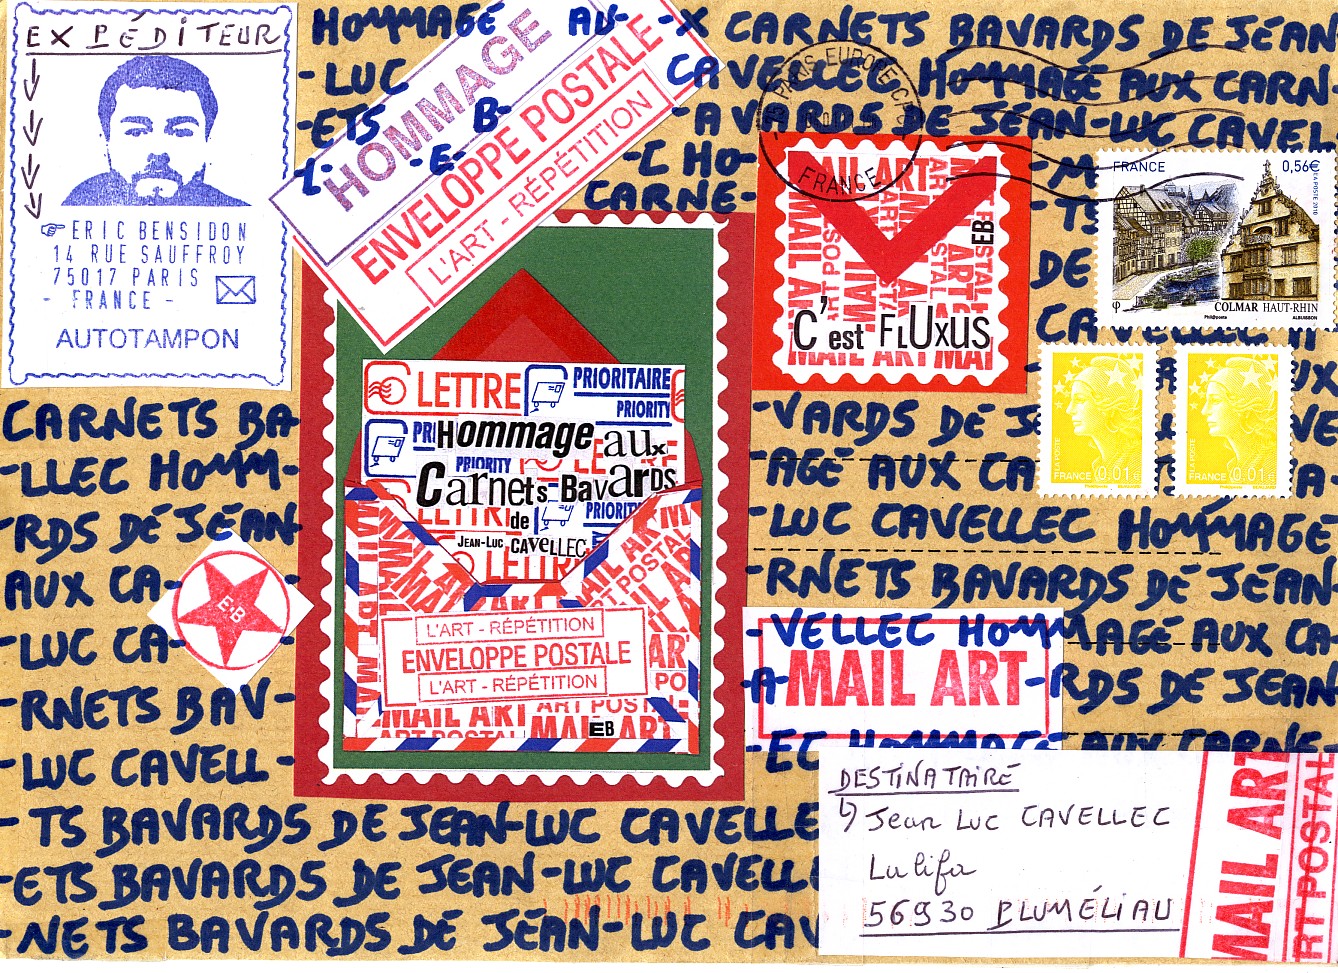 EXPÉDITEUR
ERIC BENSIDON
14 RUE SAUFFROY
75017 PARIS
- FRANCE -
AUTOTAMPON
HOMMAGE AU-
-X CARNETS BAVARDS DE JEAN
-LUC
CAVELLEC HOMMAGE AUX CARN-
-ETS
B-
-AVARDS DE JEAN-LUC CAVEL
L-
-E-
-C HO-
-M
CARNE-
-TS
DE
HOMMAGE
ENVELOPPE POSTALE
L'ART - RÉPÉTITION
PARIS EUROPE
FRANCE
MAIL ART
EB
C'est FLUXUS
MAIL ART MAI
FRANCE 0,56€
COLMAR HAUT-RHIN
Phil@poste
ALBUISSON
LA POSTE 2010
FRANCE 0,01€
LA POSTE
FRANCE 0,01€
LA POSTE
CARNETS BA-
-LLEC HOMM-
-RDS DE JEAN-
AUX CA-
-LUC CA-
-RNETS BAV-
-LUC CAVELL-
-TS BAVARDS DE JEAN-LUC CAVELLE
-ETS BAVARDS DE JEAN-LUC CAVELL
-NETS BAVARDS DE JEAN-LUC CAV
E.B
LETTRE
PRIORITAIRE
PRIORITY
PRI
Hommage aux
PRIORITY
Carnets Bavards
de
PRIORI
JEAN-LUC CAVELLEC
LETTR
MAIL ART
L'ART - RÉPÉTITION
ENVELOPPE POSTALE
L'ART - RÉPÉTITION
MAIL ART
EB
-VARDS DE JE
-AGE AUX CA
-LUC CAVELLEC HOMMAGE
-RNETS BAVARDS DE JEAN
-VELLEC HOMMAGE AUX CA-
-A-
MAIL ART
-RDS DE JEAN
-EC HOMMAGE AUX CARNE-
DESTINATAIRE
Jean Luc CAVELLEC
Lalifa
56930 PLUMÉLIAU
MAIL ART
RT POSTAL